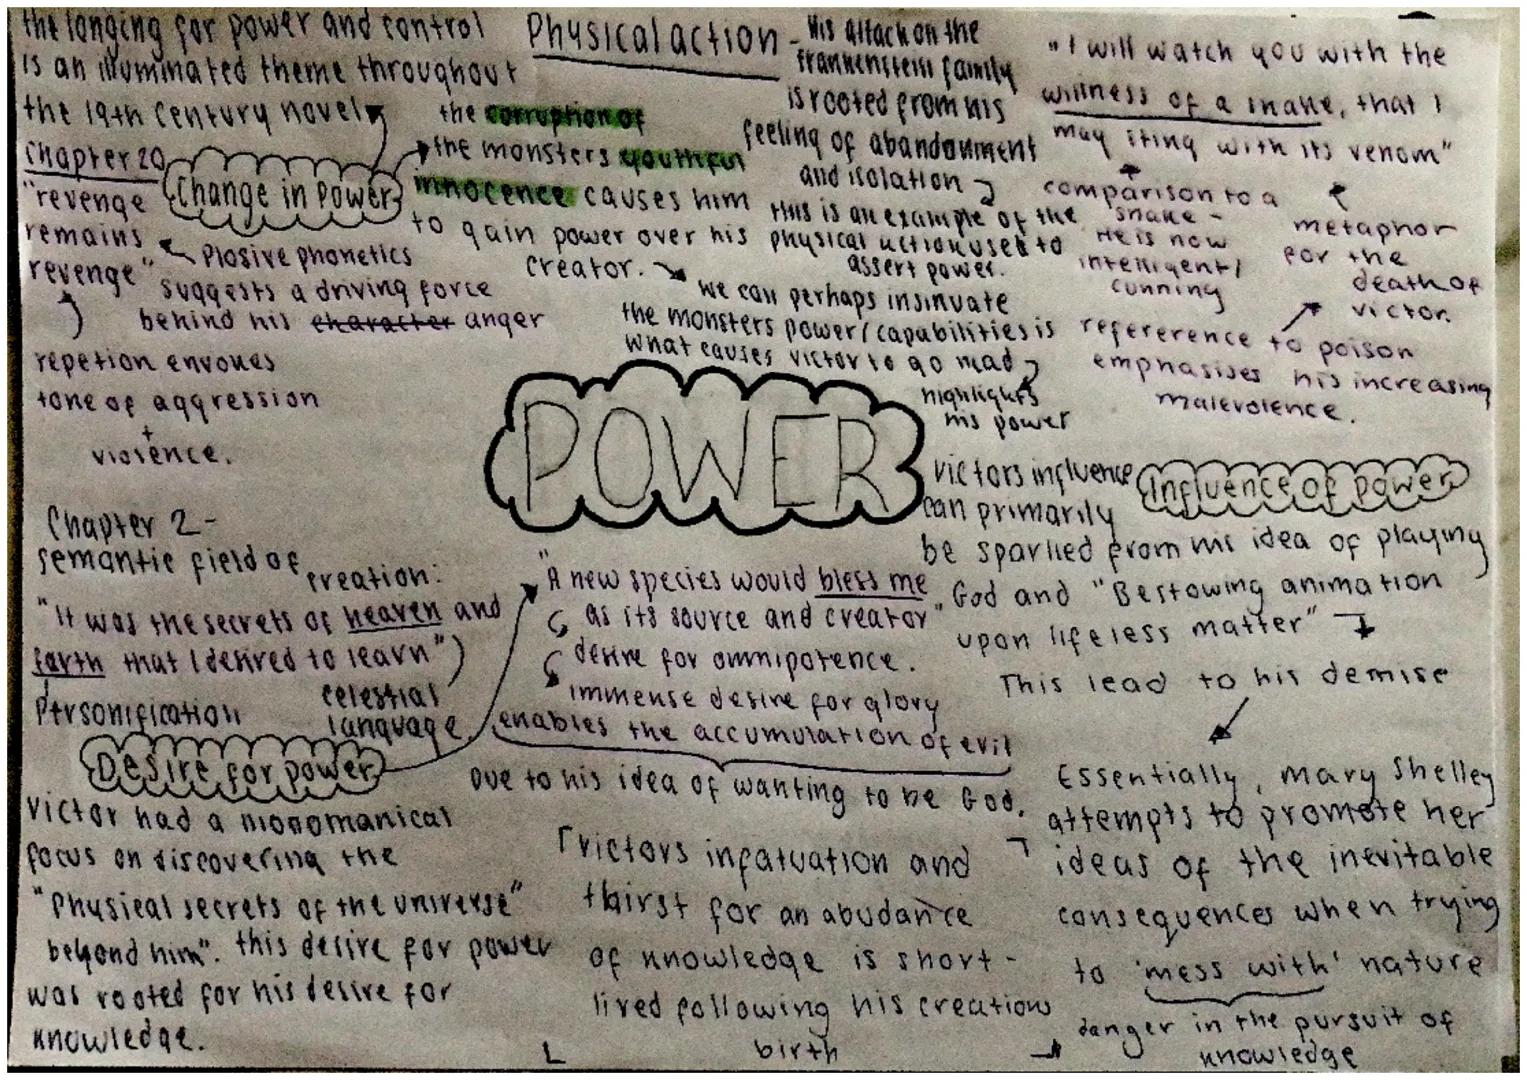 the longing for power and control
is an illuminated theme throughout
the 19th century novel
Change in Power
Chapter 20
"revenge
remains
revenge"
Plosive phonetics
suggests a driving force
behind his character anger
repetion envokes
tone of aggression
+
violence.
the corruption of
the monsters youthful
innocence causes him
to gain power over his
creator.
we can perhaps insinuate
the monsters power/capabilities is
what causes victor to go mad
highlights
his power
Physical action - His attack on the
frankenstein family
is rooted from his
feeling of abandonment
and isolation
this is an example of the
physical action used to
assert power.
"I will watch you with the
willness of a snake, that I
may sting with its venom"
comparison to a
snake -
He is now
intelligent/
cunning
metaphor
for the
death of
victor.
refererence to poison
emphasises his increasing
malevolence.
POWER
Influence of power
Victors influence
can primarily
be sparked from his idea of playing
God and "Bestowing animation
upon lifeless matter"
This lead to his demise
Essentially, Mary Shelley
attempts to promote her
ideas of the inevitable
consequences when trying
to 'mess with' nature
danger in the pursuit of
knowledge
Chapter 2 -
semantic field of
creation:
"It was the secrets of heaven and
Earth that I desired to learn")
Personification
celestial
language.
Desire for power
"A new species would bless me
as its source and creator"
desire for omnipotence.
immense desire for glory
enables the accumulation of evil
Due to his idea of wanting to be God.
Victor had a monomanical
focus on discovering the
"Physical secrets of the universe"
beyond him". this desire for power
was rooted for his desire for
knowledge.
Victors infatuation and
thirst for an abudance
of knowledge is short-
lived following his creations
birth